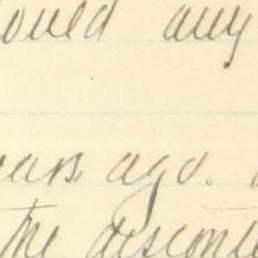 ould any
ears ago.
the discont